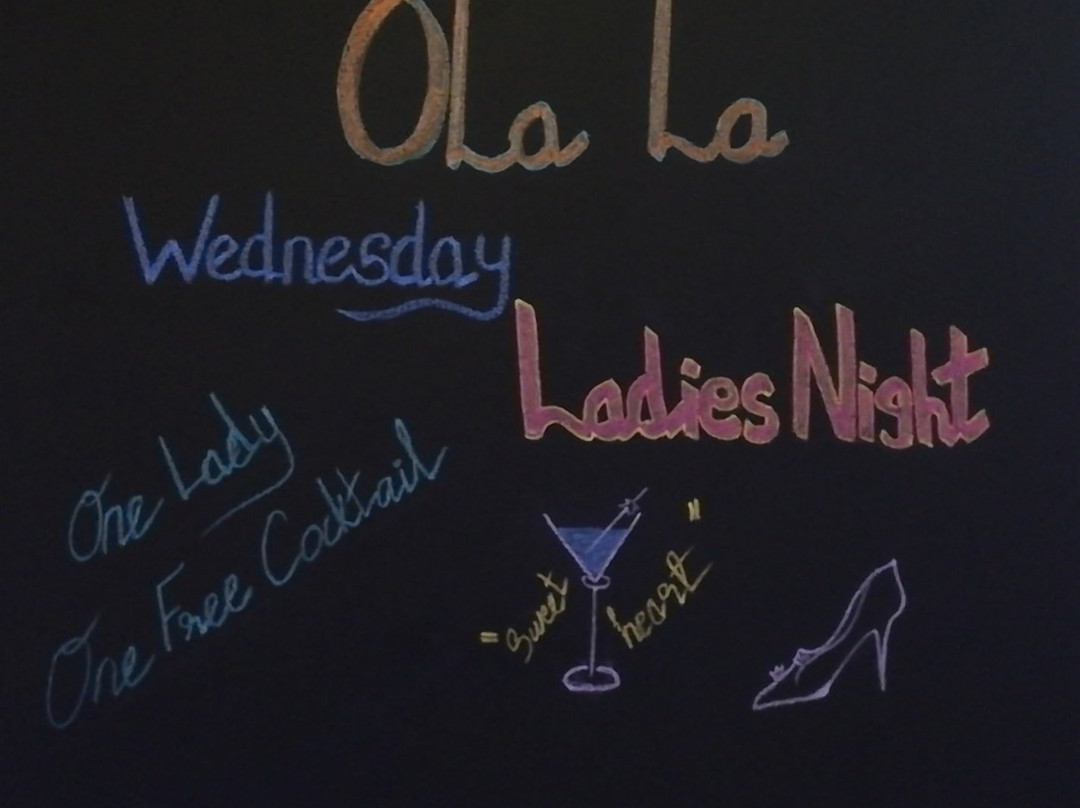 OLa La
Wednesday
Ladies Night
One Lady
One Free Cocktail
"Sweet heart"